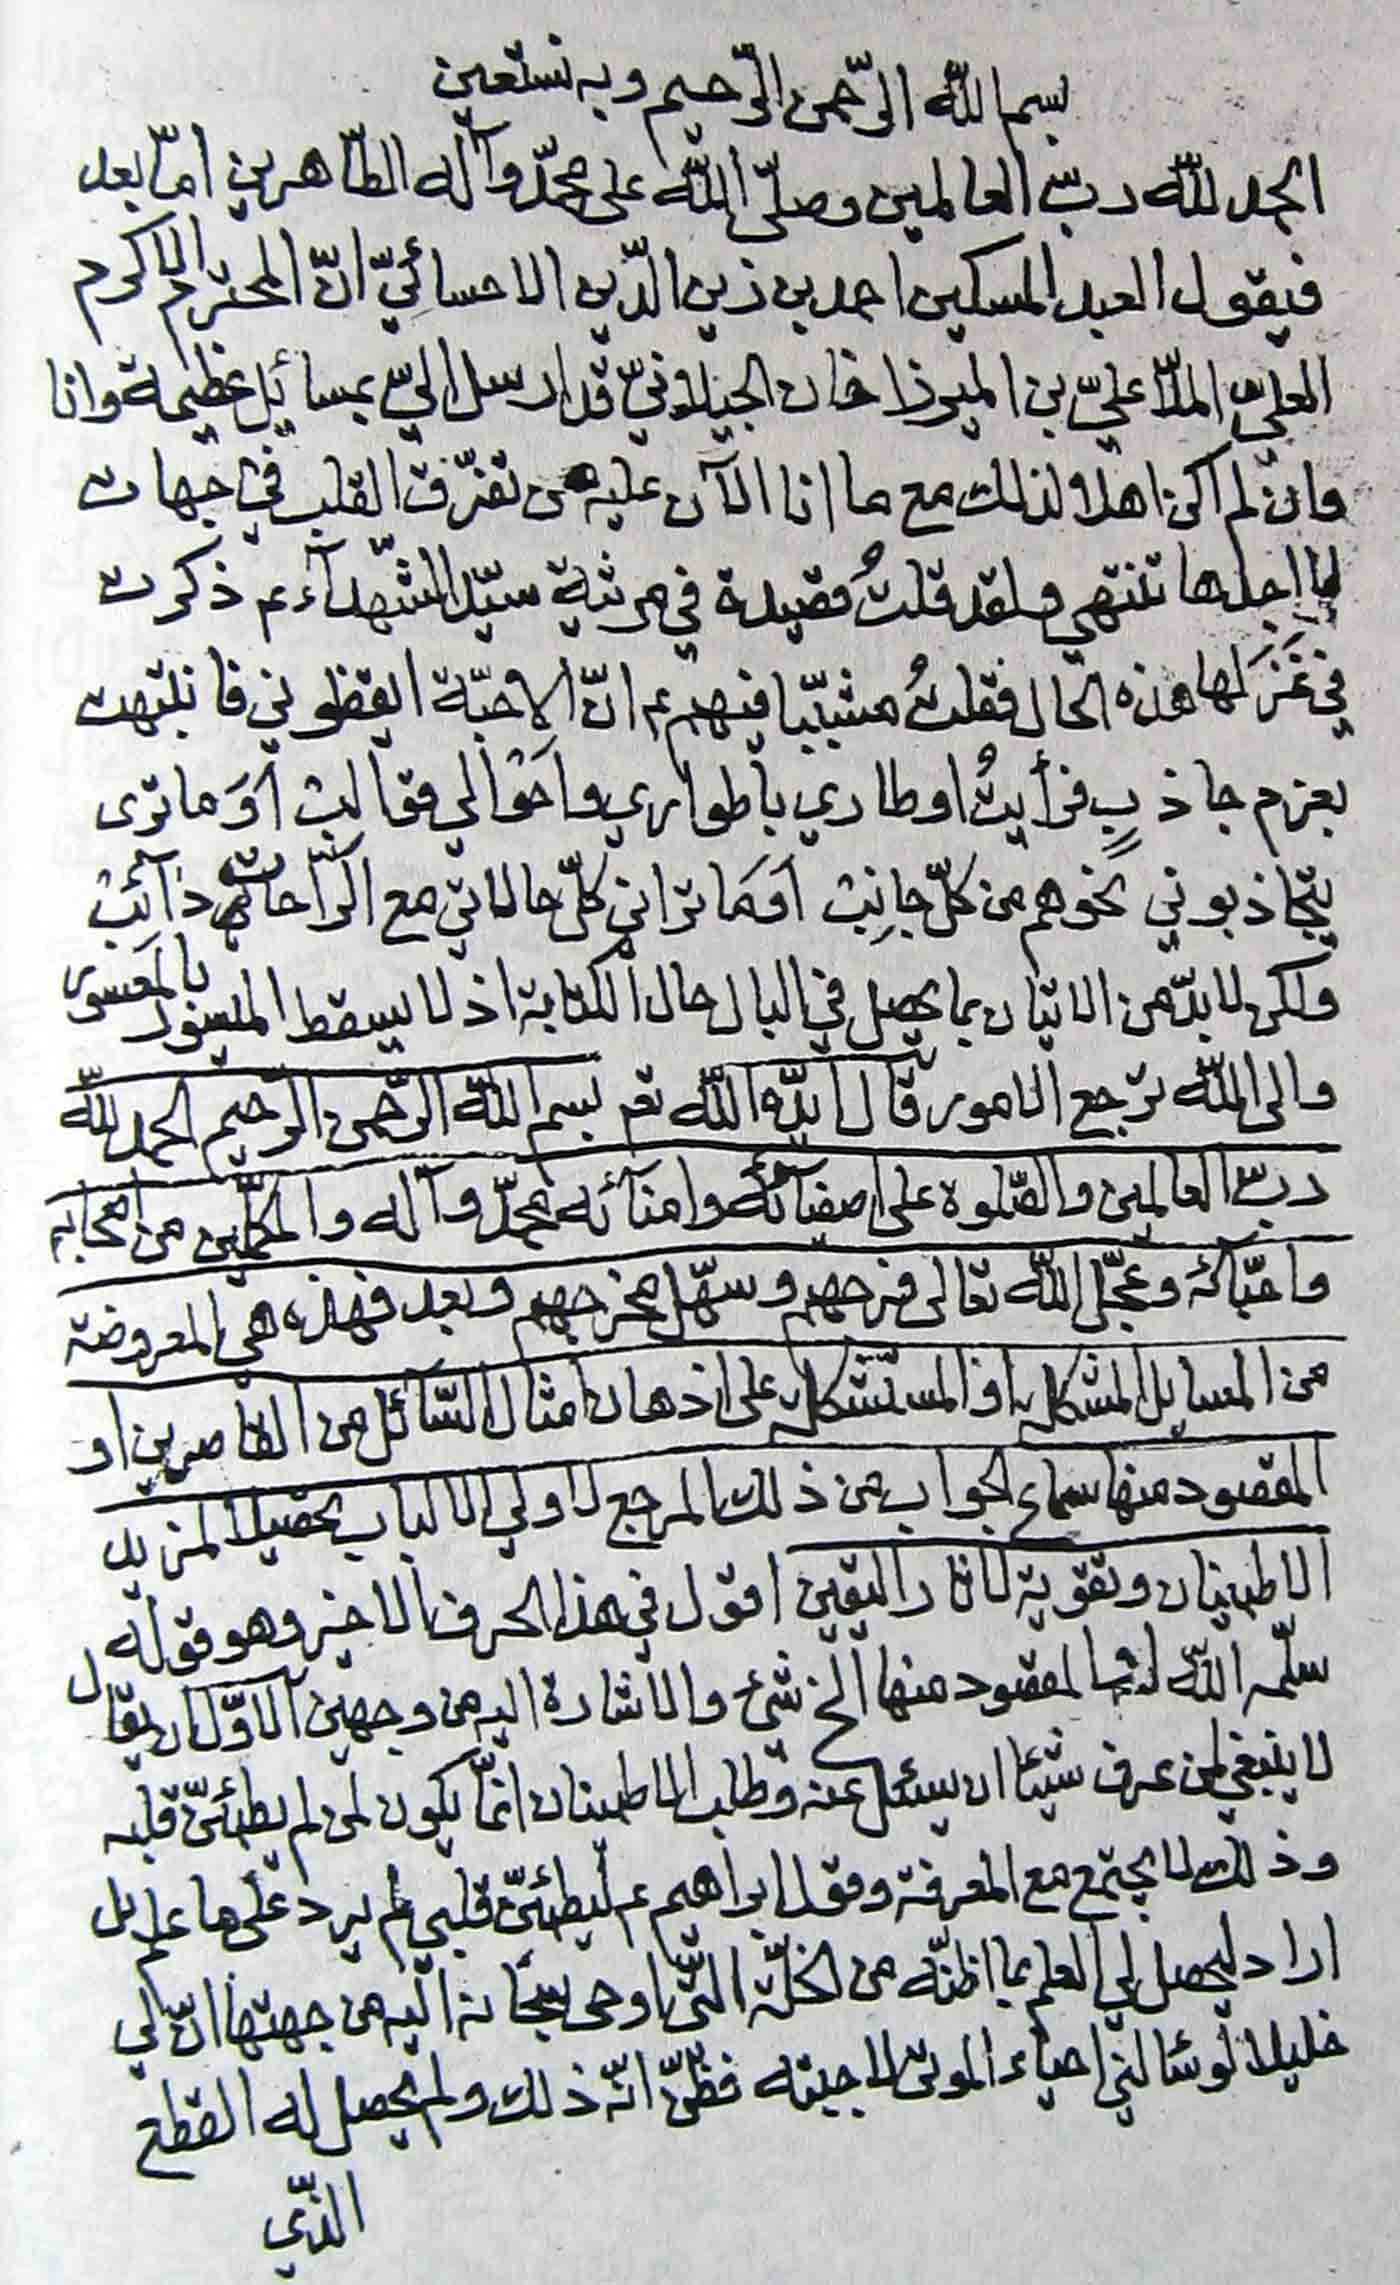 بسم الله الرّحمن الرّحيم وبه نستعين
الحمد لله ربّ العالمين وصلّى الله على محمّد وآله الطّاهرين امّا بعد
فيقول العبد المسكين احمد بن زين الدّين الاحسائيّ انّ المحترم الاكرم
العليّ الملّا عليّ بن الميرزا خان الجيلانيّ قد ارسل اليّ بمسائل عظيمة وانا
وان لم اكن اهلا لذلك مع ما انا الآن عليه من تفرّق القلب في جهات
لا اجلها تنتهي ولقد قلتُ قصيدة في مرثية سيّد الشّهدآء ع ذكرت
في غَزَلها هذه الحال فقلتُ مشبّبا فيهم ع انّ الاحبّة ايقظوني فانتبهت
بعزم جاذبٍ فرأيتُ اوطاري باطواري واحوالي فقالت أوَما ترى
يتجاذبوني نحوهم من كلّ جانِبْ أوَمَا تراني كلّ حالاتي مع الرّاحات دآئبْ
ولكن لا بدّ من الاتيان بما يحصل في البال حال الكتابة اذ لا يسقط الميسور بالمعسور
والى الله ترجع الامور قال ايّده الله تع بسم الله الرّحمن الرّحيم الحمد لله
ربّ العالمين والصّلوة على اصفيآئه وامنآئه محمّد وآله والمكمّلين من اصحابه
واحبّائه وعجّل الله تعالى فرجهم وسهّل مخرجهم وبعد فهذه هي المعروضة
من المسايل المشكلة او المستشكلة على اذهان امثال السّآئل من القاصرين او
المقصود منها سماع الجواب من ذلك المرجع لاولي الالباب تحصيلا لمزيد
الاطمينان وتقوية لانار اليقين اقول في هذا الحرف الاخير وهو قوله
سلّمه الله او المقصود منها الخ شيء والاشارة اليه من وجهين الاوّل ان يقال
لا ينبغي لمن عرف شيئا ان يسئل عنه وطلب الاطمينان انّما يكون لمن لم يطمئنّ قلبه
وذلك لا يجتمع مع المعرفة وقول ابراهيم ع ليطمئنّ قلبي لم يرد على ما علم بل
اراد ليحصل لي العلم بما اظنّه من الخلّة الّتي اوحى سبحانه اليه من جهتها انّ لي
خليلا لو سألني احياء الموتى لاجبته فظنّ انّه ذلك ولم يحصل له القطع
الذّي